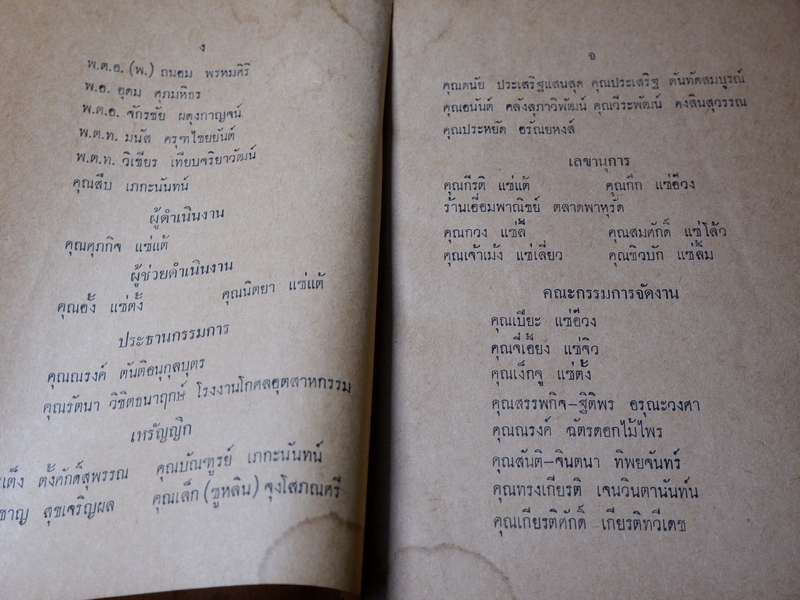 ง
พ.ต.อ. (พ.) ถนอม พรหมศิริ
พ.อ. อุดม ศุภมหิธร
พ.ต.อ. จักรชัย ผดุงกาญจน์
พ.ต.ท. มนัส ครุฑไชยยันต์
พ.ต.ท. วิเชียร เทียบจริยาวัฒน์
คุณสืบ เภกะนันทน์
ผู้ดำเนินงาน
คุณศุภกิจ แซ่แต้
ผู้ช่วยดำเนินงาน
คุณอั้ง แซ่ตั้ง คุณนิตยา แซ่แต้
ประธานกรรมการ
คุณณรงค์ ตันติอนุกุลบุตร
คุณรัตนา วิชิตธนาฤกษ์ โรงงานโกศลอุตสาหกรรม
เหรัญญิก
เต็ง ตั้งศักดิ์สุพรรณ คุณบัณฑูรย์ เภกะนันทน์
ชาญ สุขเจริญผล คุณเล็ก (ซูหลิน) จุงโสภณศรี
จ
คุณดนัย ประเสริฐแสนสุด คุณประเสริฐ ตันทัดสมบูรณ์
คุณอนันต์ คลังสุภาวิพัฒน์ คุณวีระพัฒน์ คงสินสุวรรณ
คุณประหยัด อรัณยหงส์
เลขานุการ
คุณกีรติ แซ่แต้ คุณกิ๊ก แซ่อึ้วง
ร้านเอี่อมพาณิชย์ ตลาดพาหุรัด
คุณกวง แซ่ลี้ คุณสมศักดิ์ แซ่โล้ว
คุณเจ้าเม้ง แซ่เลี่ยว คุณชิวบัก แซ่ลิ้ม
คณะกรรมการจัดงาน
คุณเบี๊ยะ แซ่อึ๊วง
คุณจี่เอี้ยง แซ่จิว
คุณเง็กจู แซ่ตั้ง
คุณสรรพกิจ-ฐิติพร อรุณะวงศา
คุณณรงค์ ฉัตรดอกไม้ไพร
คุณสันติ-จินตนา ทิพยจันทร์
คุณทรงเกียรติ เจนวินตานันท์น
คุณเกียรติศักดิ์ เกียรติทวีเดช